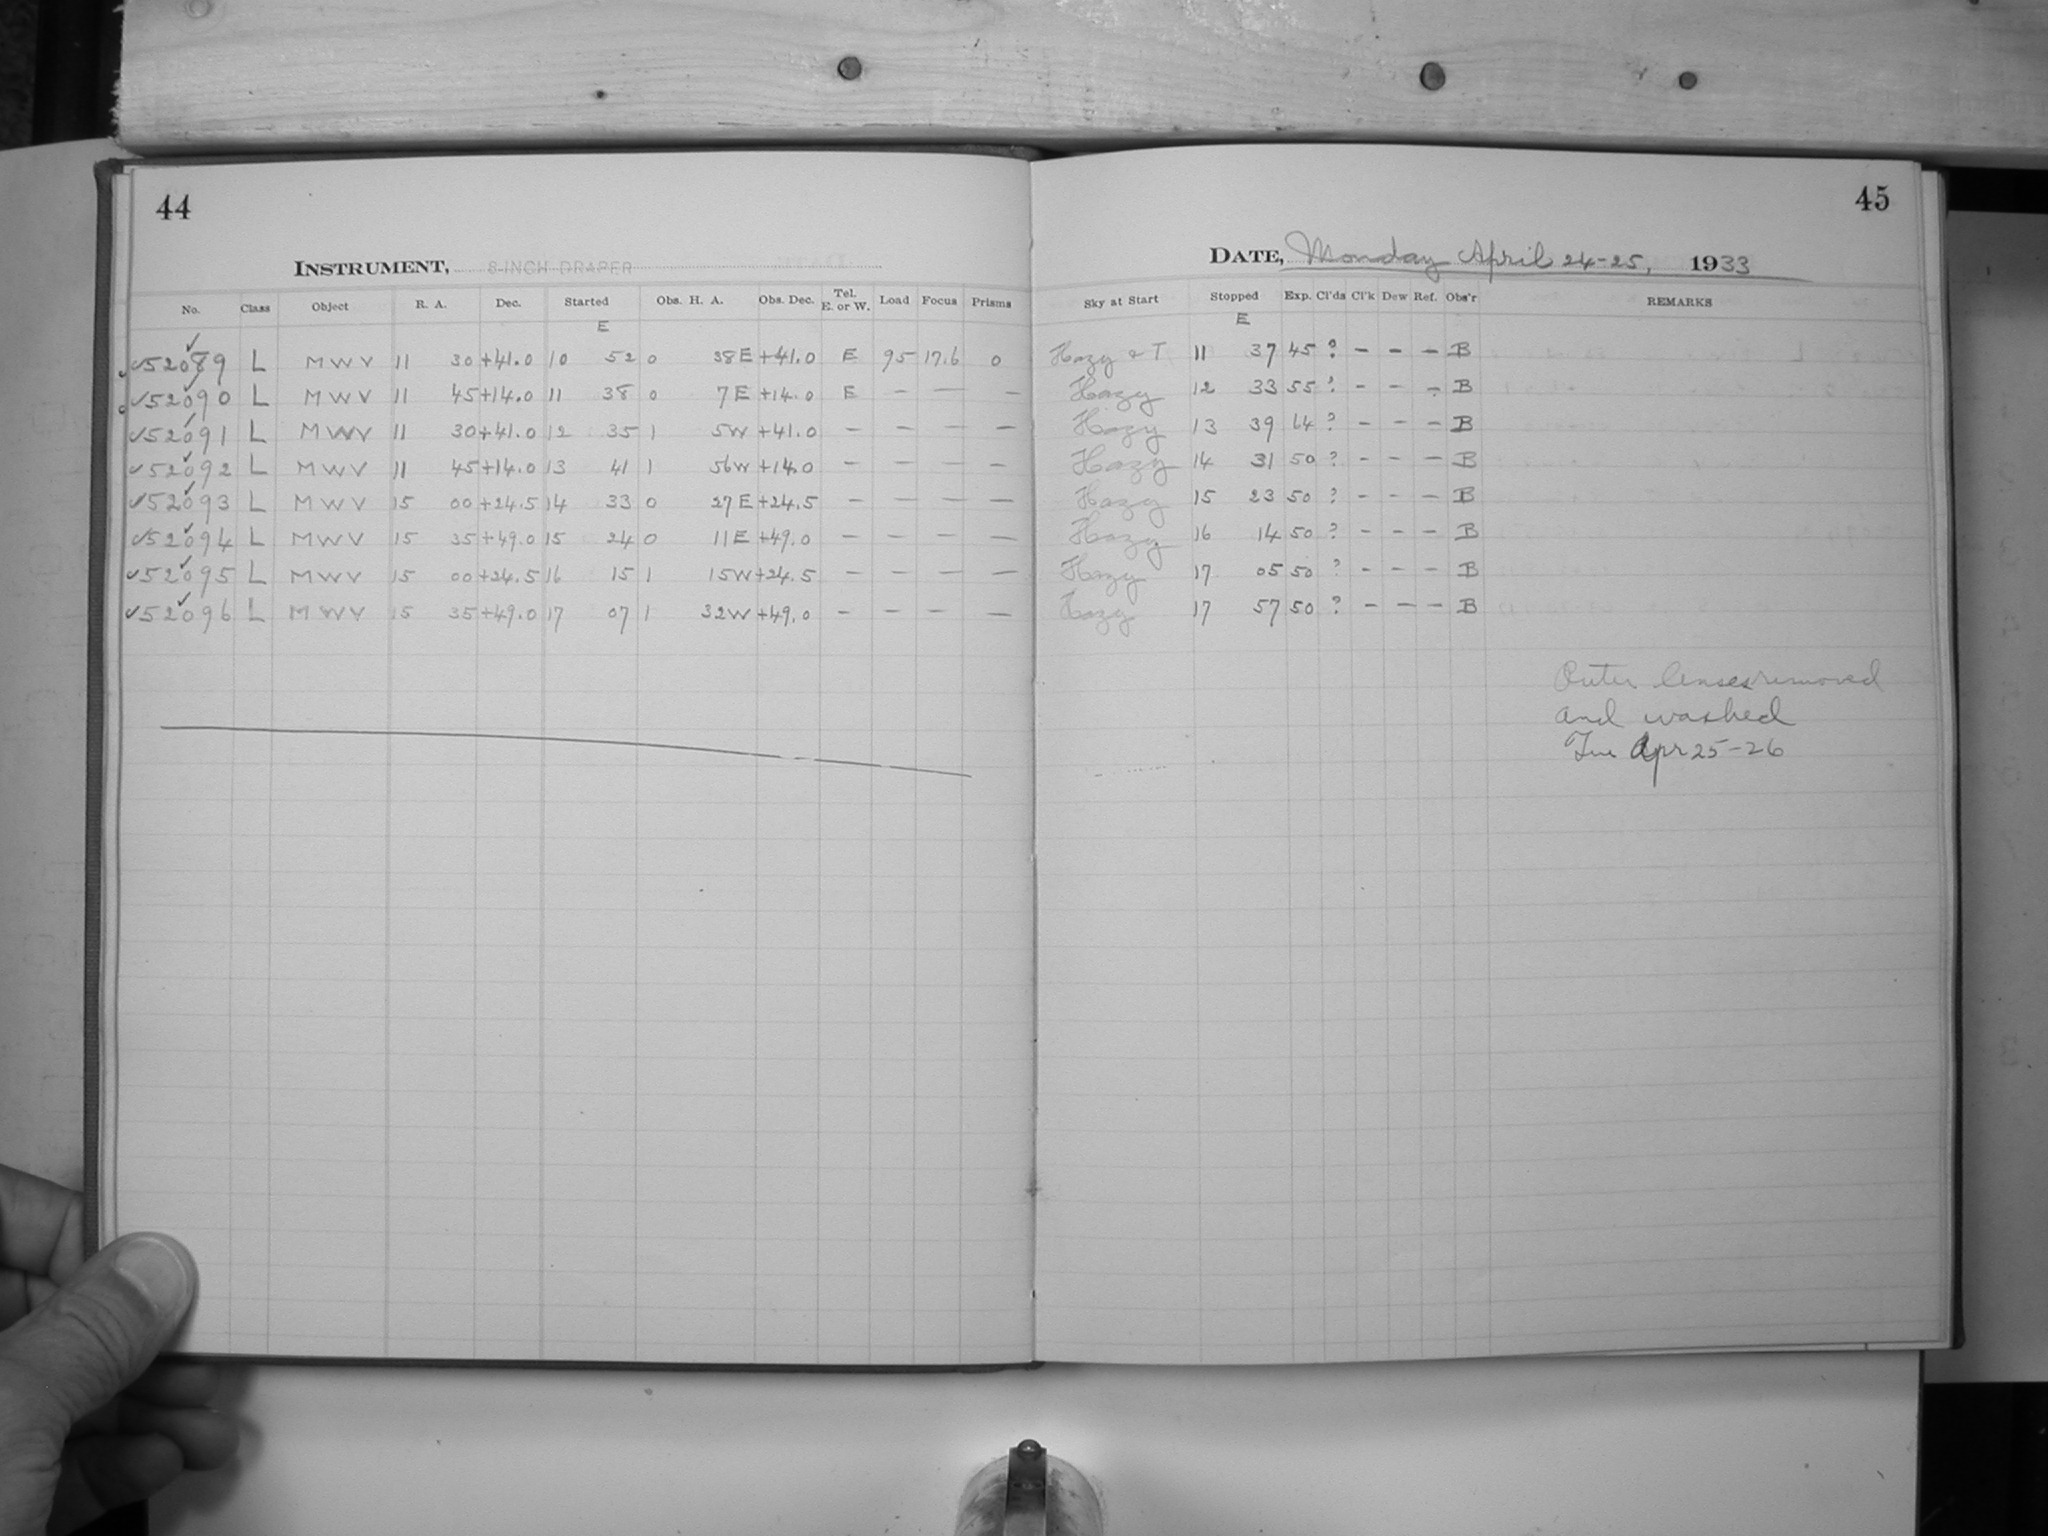 44
INSTRUMENT, 8-INCH DRAPER
No. Class Object R. A. Dec. Started Obs. H. A. Obs. Dec. Tel. E. or W. Load Focus Prisms
E
52089 L MWV 11 30 +41.0 10 52 0 38E +41.0 E 95 17.6 0
52090 L MWV 11 45 +14.0 11 38 0 7E +14.0 E — — —
52091 L MWV 11 30 +41.0 12 35 1 5W +41.0 — — — —
52092 L MWV 11 45 +14.0 13 41 1 56W +14.0 — — — —
52093 L MWV 15 00 +24.5 14 33 0 27E +24.5 — — — —
52094 L MWV 15 35 +49.0 15 24 0 11E +49.0 — — — —
52095 L MWV 15 00 +24.5 16 15 1 15W +24.5 — — — —
52096 L MWV 15 35 +49.0 17 07 1 32W +49.0 — — — —
45
DATE, Monday April 24-25, 1933
Sky at Start Stopped Exp. Cl'ds Cl'k Dew Ref. Obs'r REMARKS
E
Hazy & T 11 37 45 ? — — — B
Hazy 12 33 55 ? — — — B
Hazy 13 39 64 ? — — — B
Hazy 14 31 50 ? — — — B
Hazy 15 23 50 ? — — — B
Hazy 16 14 50 ? — — — B
Hazy 17 05 50 ? — — — B
Hazy 17 57 50 ? — — — B
Outer lenses removed
and washed
Tue Apr 25-26